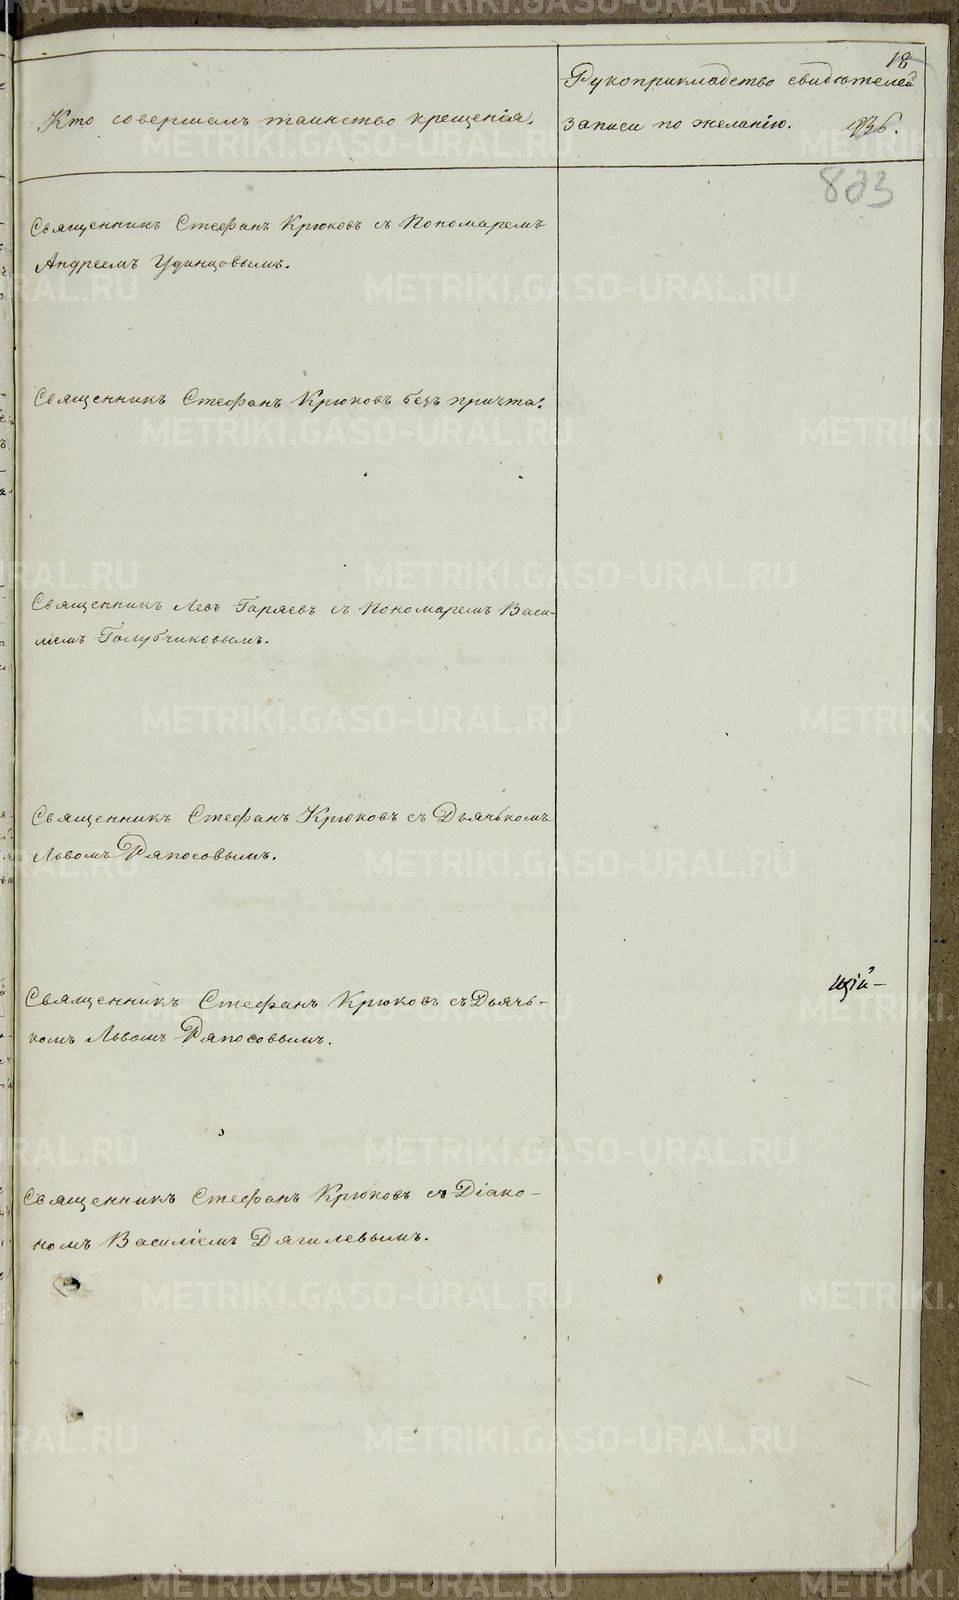 18
Кто совершалъ таинство крещенія.
Рукоприкладство свидѣтелей
записи по желанію.
823
Священникъ Стефанъ Крюковъ съ Пономаремъ
Андреемъ Удинцовымъ.
Священникъ Стефанъ Крюковъ безъ причта.
Священникъ Левъ Гаряевъ съ Пономаремъ Васи-
ліемъ Голубчиковымъ.
Священникъ Стефанъ Крюковъ съ Дьячькомъ
Львомъ Ряпосовымъ.
Священникъ Стефанъ Крюковъ съ Дьячь-
комъ Львомъ Ряпосовымъ.
щій-
Священникъ Стефанъ Крюковъ съ Діако-
номъ Василіемъ Дягилевымъ.
METRIKI.GASO-URAL.RU